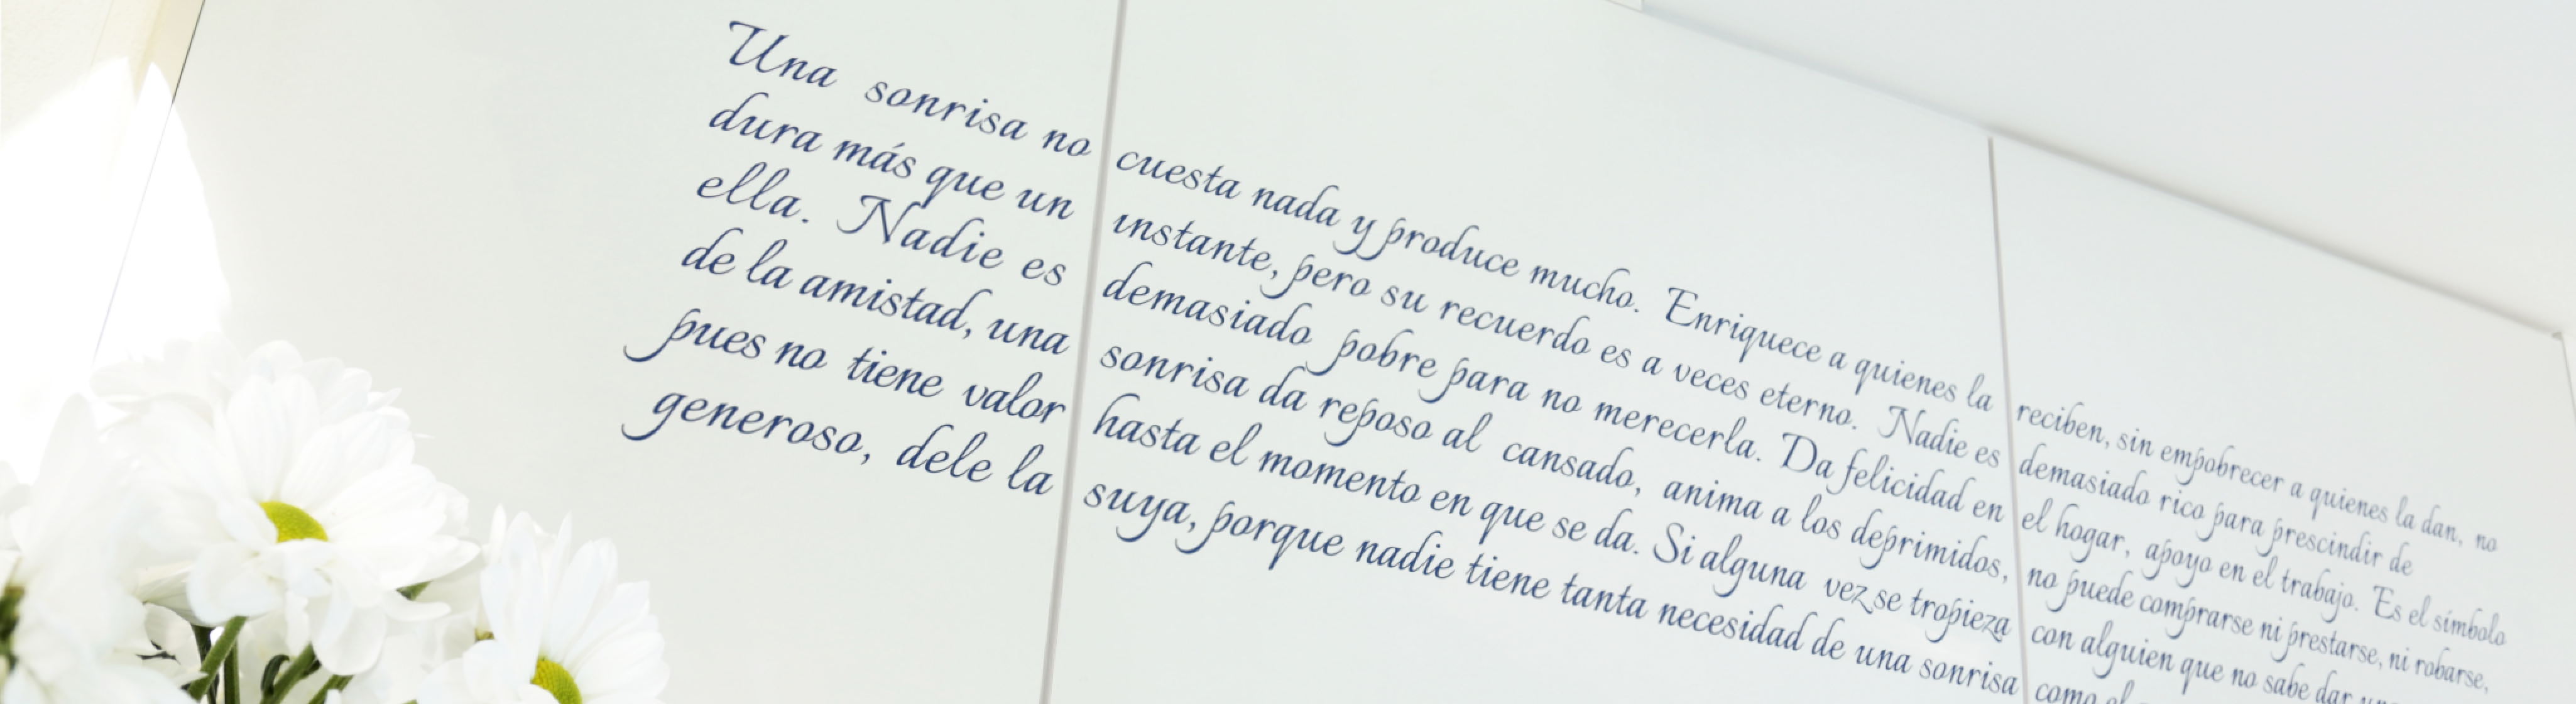 Una sonrisa no cuesta nada y produce mucho. Enriquece a quienes la reciben, sin empobrecer a quienes la dan, no
dura más que un instante, pero su recuerdo es a veces eterno. Nadie es demasiado rico para prescindir de
ella. Nadie es demasiado pobre para no merecerla. Da felicidad en el hogar, apoyo en el trabajo. Es el símbolo
de la amistad, una sonrisa da reposo al cansado, anima a los deprimidos, no puede comprarse ni prestarse, ni robarse,
pues no tiene valor hasta el momento en que se da. Si alguna vez se tropieza con alguien que no sabe dar
generoso, dele la suya, porque nadie tiene tanta necesidad de una sonrisa como el